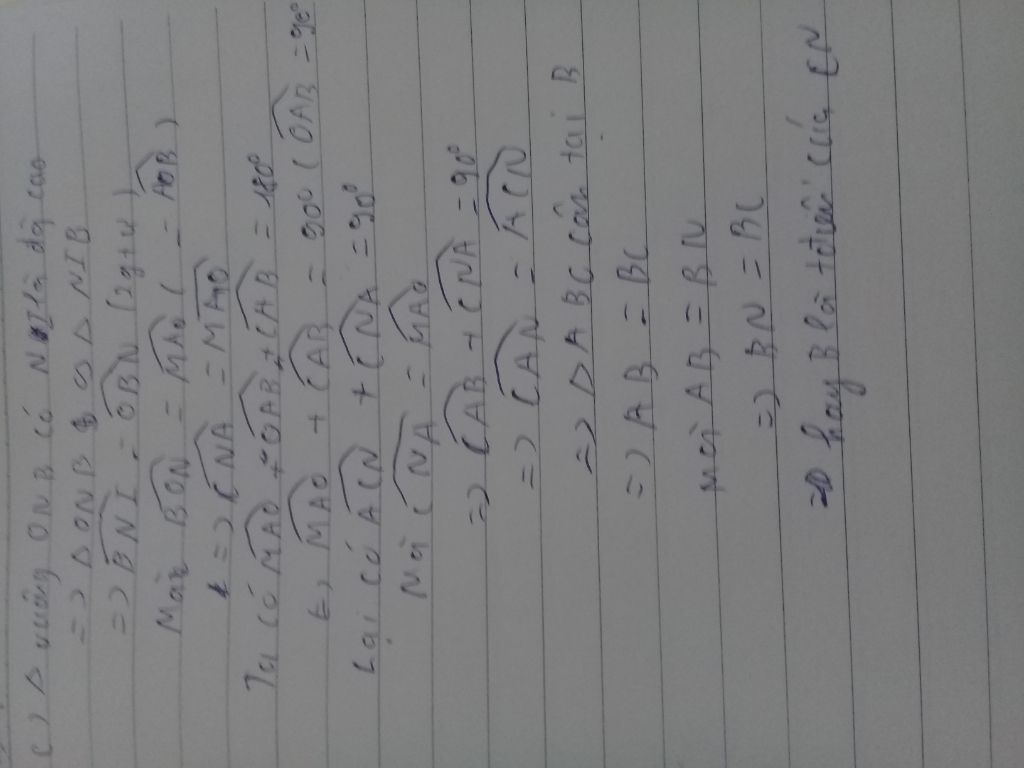 c) Δ vuông ONB có NI là đg cao
=> Δ ONB ∽ Δ NIB
=> BNI = OBN (2gtư)
Mà BON = MAO ( = AOB )
=> CNA = MAO
Ta có MAO + OAB + CAB = 180°
<=> MAO + CAB = 90° ( OAB = 90°
Lại có ACN + CNA = 90°
Mà CNA = MAO
=> CAB + CNA = 90°
=> CAN = ACN
=> Δ ABC cân tại B
=> AB = BC
mà AB = BN
=> BN = BC
=> hay B là tđiểm của CN